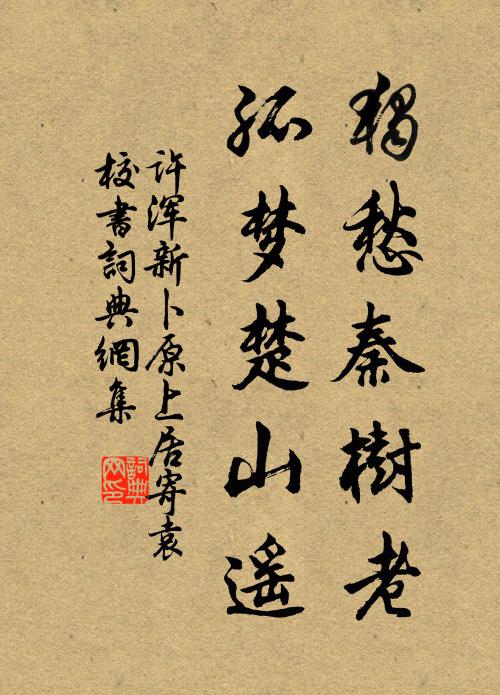 獨愁秦樹老
孤梦楚山遥
许浑新卜原上居寄袁
校書詞典網集
詞典
网印